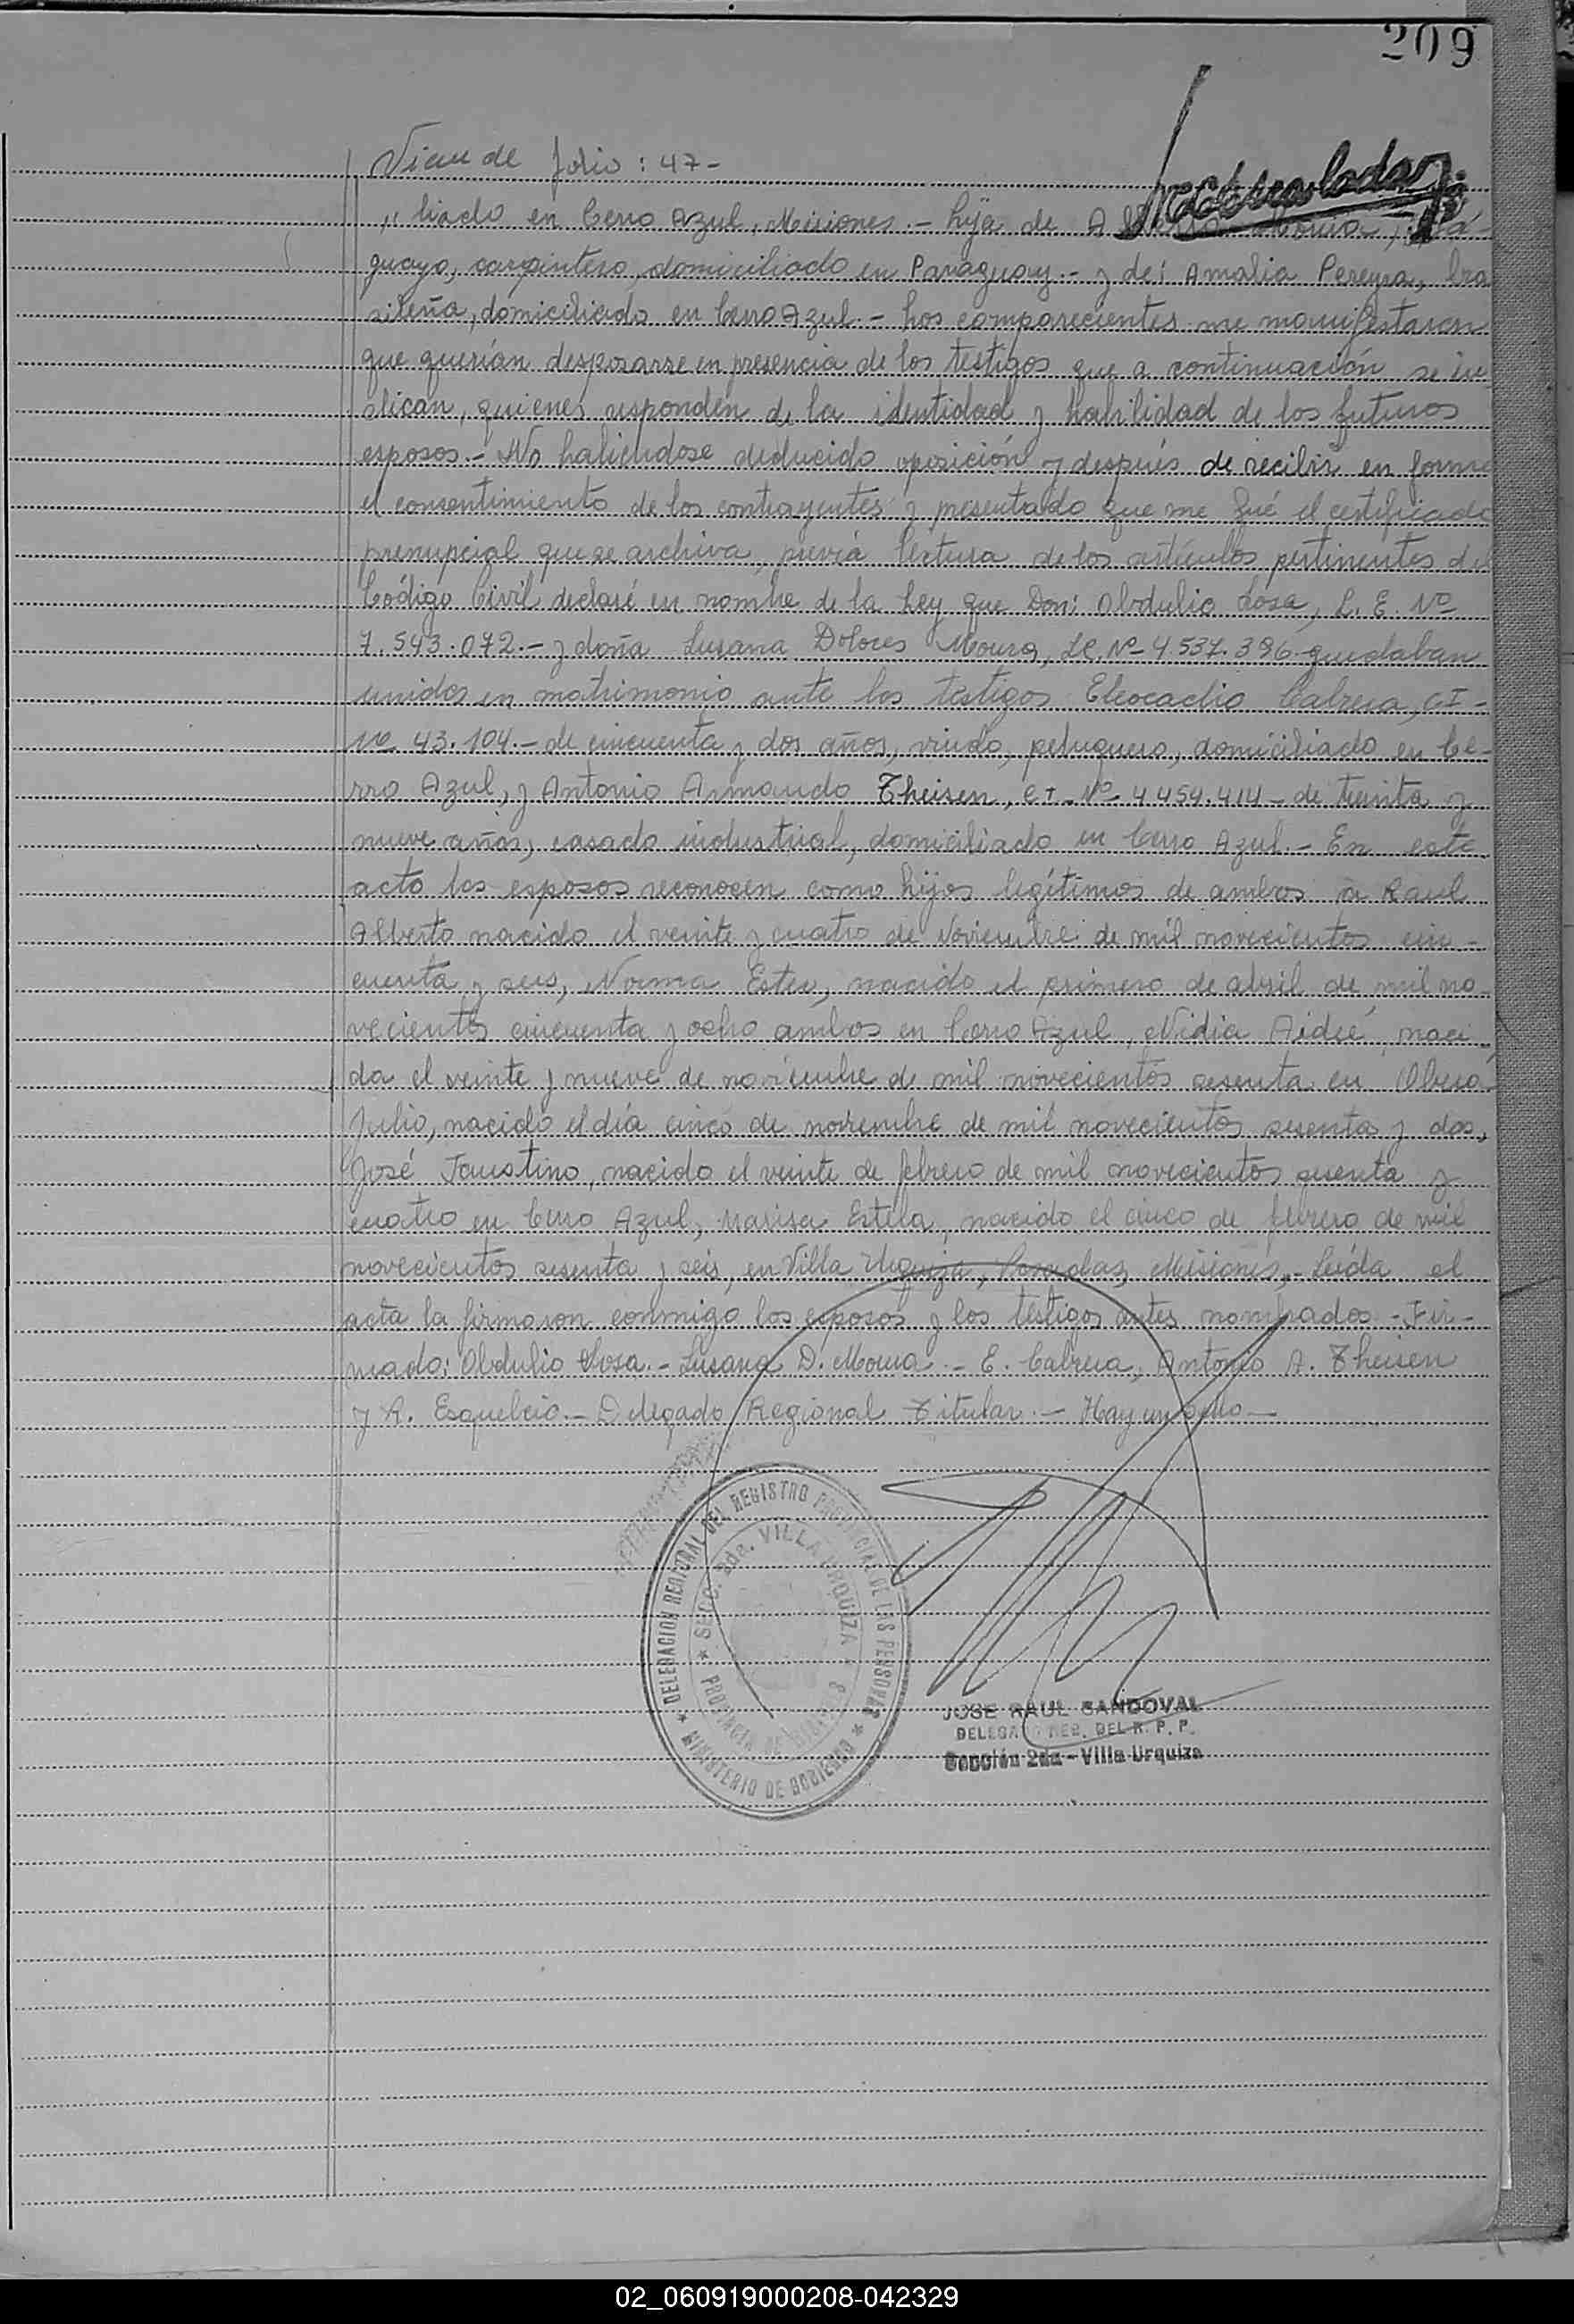 209
Viene de folio: 47-
,, liado en Cerro Azul, Misiones.- hija de
guayo, carpintero, domiciliado en Paraguay.- y de: Amalia Pereyra, bra
sileña, domiciliado en Cerro Azul.- Los comparecientes me manifestaron
que querían desposarse en presencia de los testigos que a continuación se in
dican, quienes responden de la identidad y habilidad de los futuros
esposos.- No habiendose deducido oposición y después de recibir en forma
el consentimiento de los contrayentes y presentado que me fué el certificado
prenupcial que se archiva, previa lectura de los artículos pertinentes del
Código Civil declaré en nombre de la Ley que Don: Obdulio Sosa, L. E. Nº
7.543.072.- y doña Susana Dolores Moura, LC. Nº 4.537.396 quedaban
unidos en matrimonio ante los testigos Eleocadio Cabrera, CI-
Nº 43.104.- de cincuenta y dos años, viudo, peluquero, domiciliado en Ce-
rro Azul, y Antonio Armando Theisen, CI- Nº 4454.414- de treinta y
nueve años, casado industrial, domiciliado en Cerro Azul.- En este
acto los esposos reconocen como hijos legítimos de ambos a Raul
Alberto nacido el veinte y cuatro de Noviembre de mil novecientos cin-
cuenta y seis, Norma Ester, nacido el primero de abril de mil no-
vecientos cincuenta y ocho ambos en Cerro Azul, Nidia Aideé, naci-
da el veinte y nueve de noviembre de mil novecientos sesenta en Oberá
Julio, nacido el día cinco de noviembre de mil novecientos sesenta y dos,
José Faustino, nacido el veinte de febrero de mil novecientos sesenta y
cuatro en Cerro Azul, Marisa Estela, nacido el cinco de febrero de mil
novecientos sesenta y seis, en Villa Urquiza, Posadas, Misiones,- Leída el
acta la firmaron conmigo los esposos y los testigos antes nombrados.- Fir-
mado: Obdulio Sosa.- Susana D. Moura.- E. Cabrera, Antonio A. Theisen
y R. Esquelcio.- Delegado Regional Titular.- Hay un sello-
DELEGACION REGIONAL DEL REGISTRO PROVINCIAL DE LAS PERSONAS
SECC. 2da. VILLA URQUIZA
PROVINCIA DE MISIONES
MINISTERIO DE GOBIERNO
JOSE RAUL SANDOVAL
DELEGADO REG. DEL R. P. P.
Sección 2da - Villa Urquiza
02_060919000208-042329